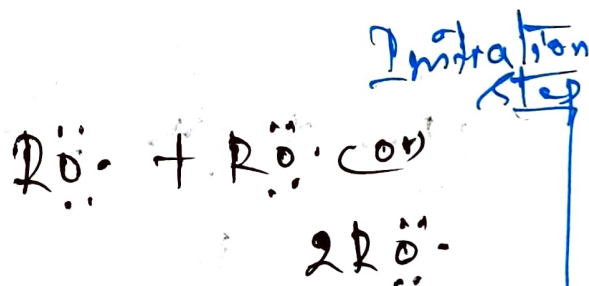 Initiation
Step
RÖ· + RÖ· (or)
2RÖ·